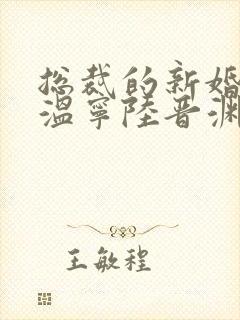 总裁的新婚
温宁陆晋渊
王敏程